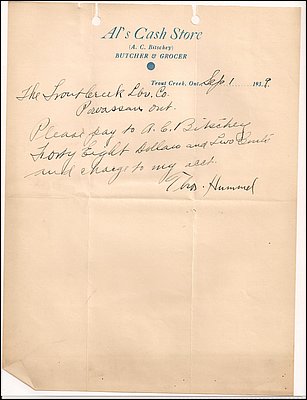 Al's Cash Store
(A. C. Bitschey)
BUTCHER & GROCER
Trout Creek, Ont. Sep. 1 1939
The Trout Creek Lbr. Co.
Powassan Ont.
Please pay to A. C. Bitschey
Forty Eight Dollars and Two Cents
and charge to my acct.
Thos. Hummel